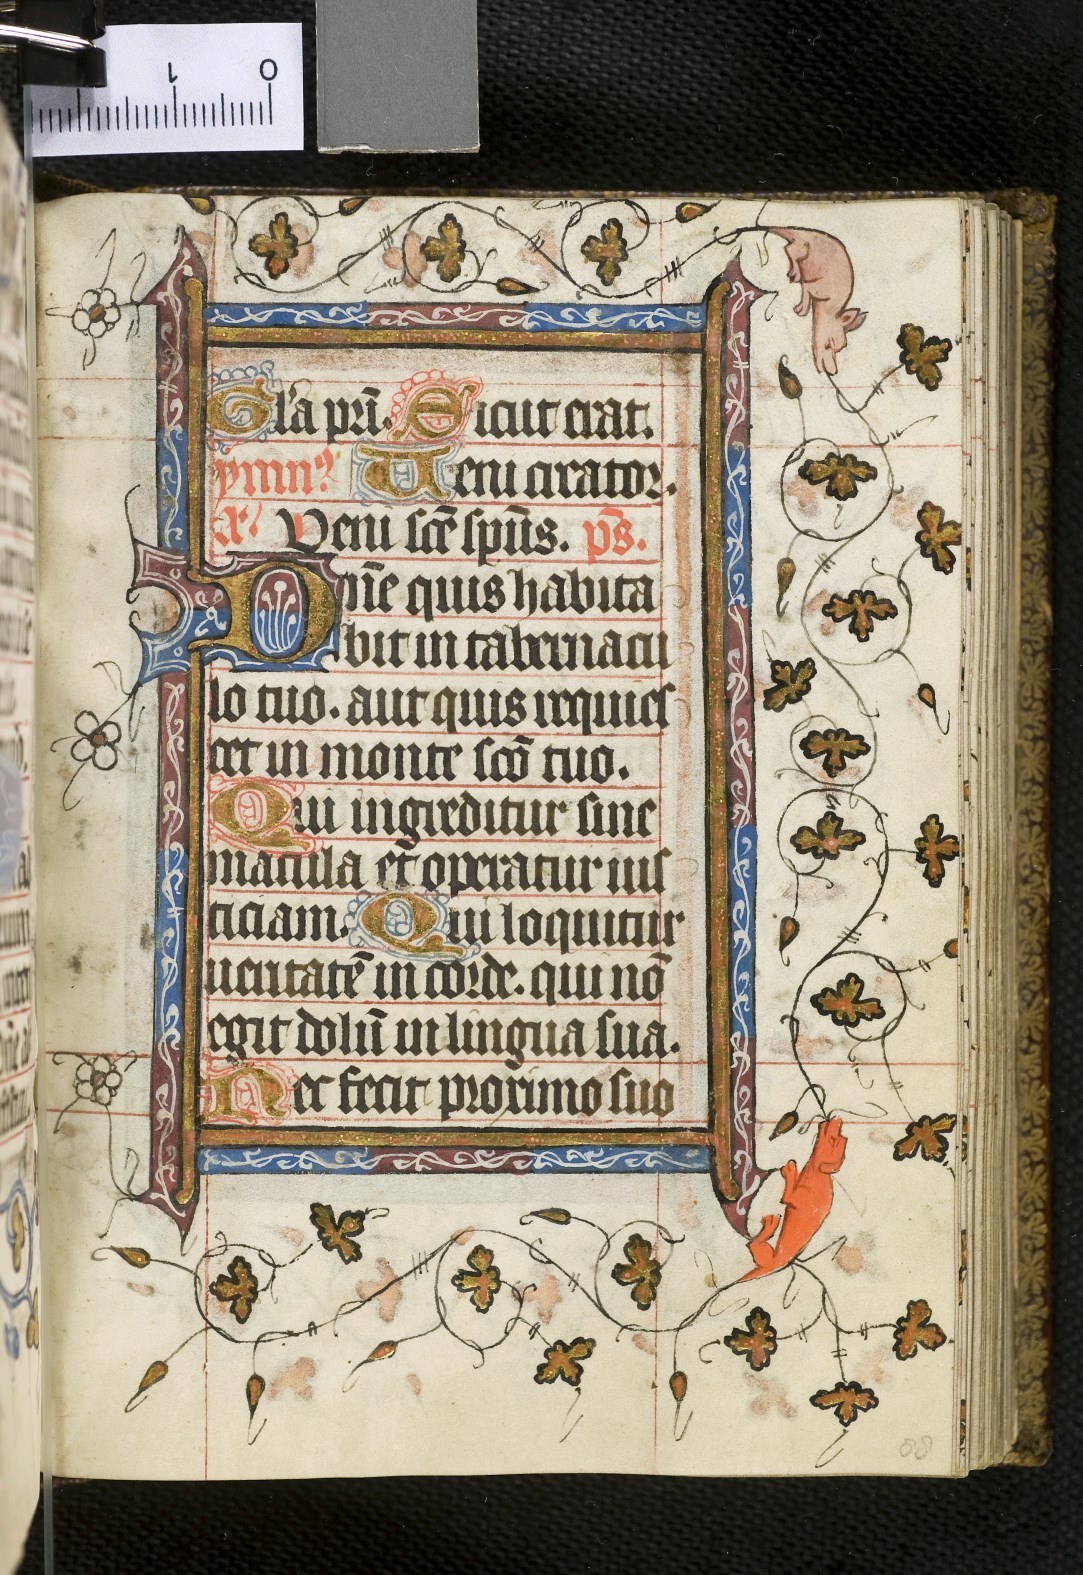 1 0
Gl'a pri. Sicut erat.
ymn9 Ueni creator.
a. Veni scē spūs. ps.
Dn̄e quis habita
bit in tabernacu
lo tuo. aut quis requies
cet in monte scō tuo.
Qui ingreditur sine
macula et operatur ius
ticiam. Qui loquitur
ueritatē in corde. qui nō
egit dolū in lingua sua.
Nec fecit proximo suo
88